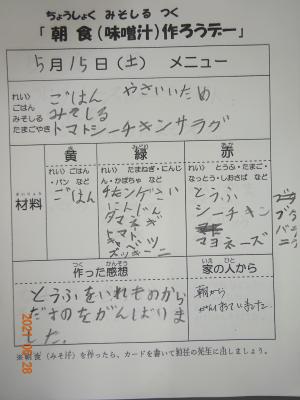 ちょうしょく みそしる つく
「朝食(味噌汁)作ろうデー」
5月15日(土) メニュー
れい) ごはん やさいいため
ごはん
みそしる みそしる
たまごやき トマトシーチキンサラダ
黄 緑 赤
れい) ごはん
・パン など
れい) たまねぎ・にんじ
ん・かぼちゃ など
れい) とうふ・たまご・
なっとう・しおさば など
材料
ごはん
チンゲンさい
にんじん
タマネギ
トマト
キャベツ
ズッキーニ
とうふ
シーチキン
マヨネーズ
つく かんそう
作った感想
いえ ひと
家の人から
とうふをいれものから
だすのをがんばりま
した。
朝から
がんばっていました
2021 05 28
※朝食(みそ汁)を作ったら、カードを書いて担任の先生に出しましょう。